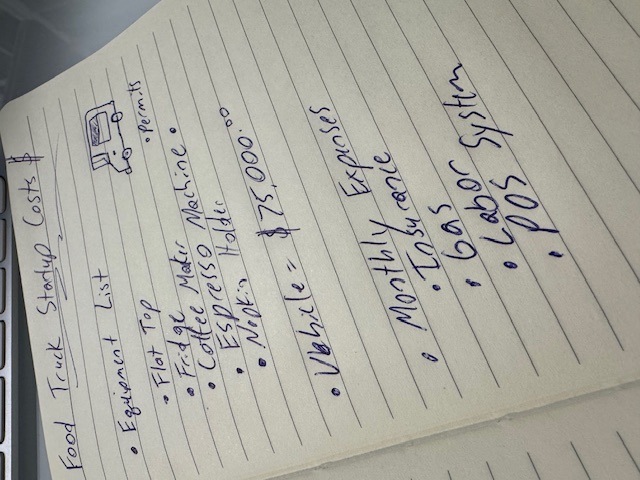 Food Truck Startup Costs $
• Equipment List
• Permits
• Flat Top
• Fridge
• Coffee Maker
• Espresso Machine •
• Napkin Holder
• Vehicle = $75,000.00
• Monthly Expenses
• Insurance
• Gas
• Labor
• POS System